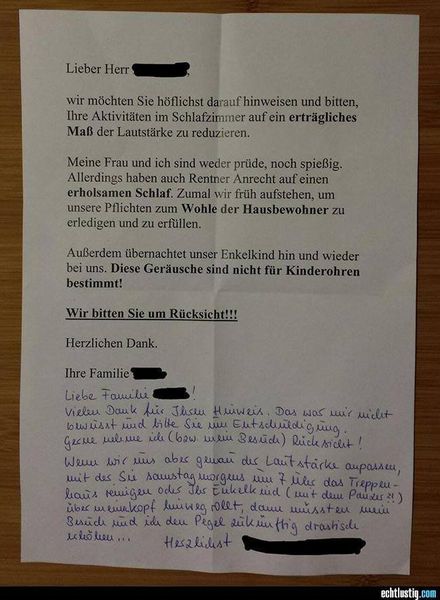 Lieber Herr
wir möchten Sie höflichst darauf hinweisen und bitten,
Ihre Aktivitäten im Schlafzimmer auf ein erträgliches
Maß der Lautstärke zu reduzieren.
Meine Frau und ich sind weder prüde, noch spießig.
Allerdings haben auch Rentner Anrecht auf einen
erholsamen Schlaf. Zumal wir früh aufstehen, um
unsere Pflichten zum Wohle der Hausbewohner zu
erledigen und zu erfüllen.
Außerdem übernachtet unser Enkelkind hin und wieder
bei uns. Diese Geräusche sind nicht für Kinderohren
bestimmt!
Wir bitten Sie um Rücksicht!!!
Herzlichen Dank.
Ihre Familie
Liebe Familie !
Vielen Dank für Ihren Hinweis. Das war mir nicht
bewusst und bitte Sie um Entschuldigung.
Gerne nehme ich (bzw mein Besuch) Rücksicht!
Wenn wir uns aber genau der Lautstärke anpassen,
mit der Sie samstagmorgens um 7 Uhr das Treppen-
haus reinigen oder Ihr Enkelkind (mit dem Panzer?!)
über meinen Kopf hinweg rollt, dann müssten mein
Besuch und ich den Pegel zukünftig drastisch
erhöhen...
Herzlichst
echtlustig.com